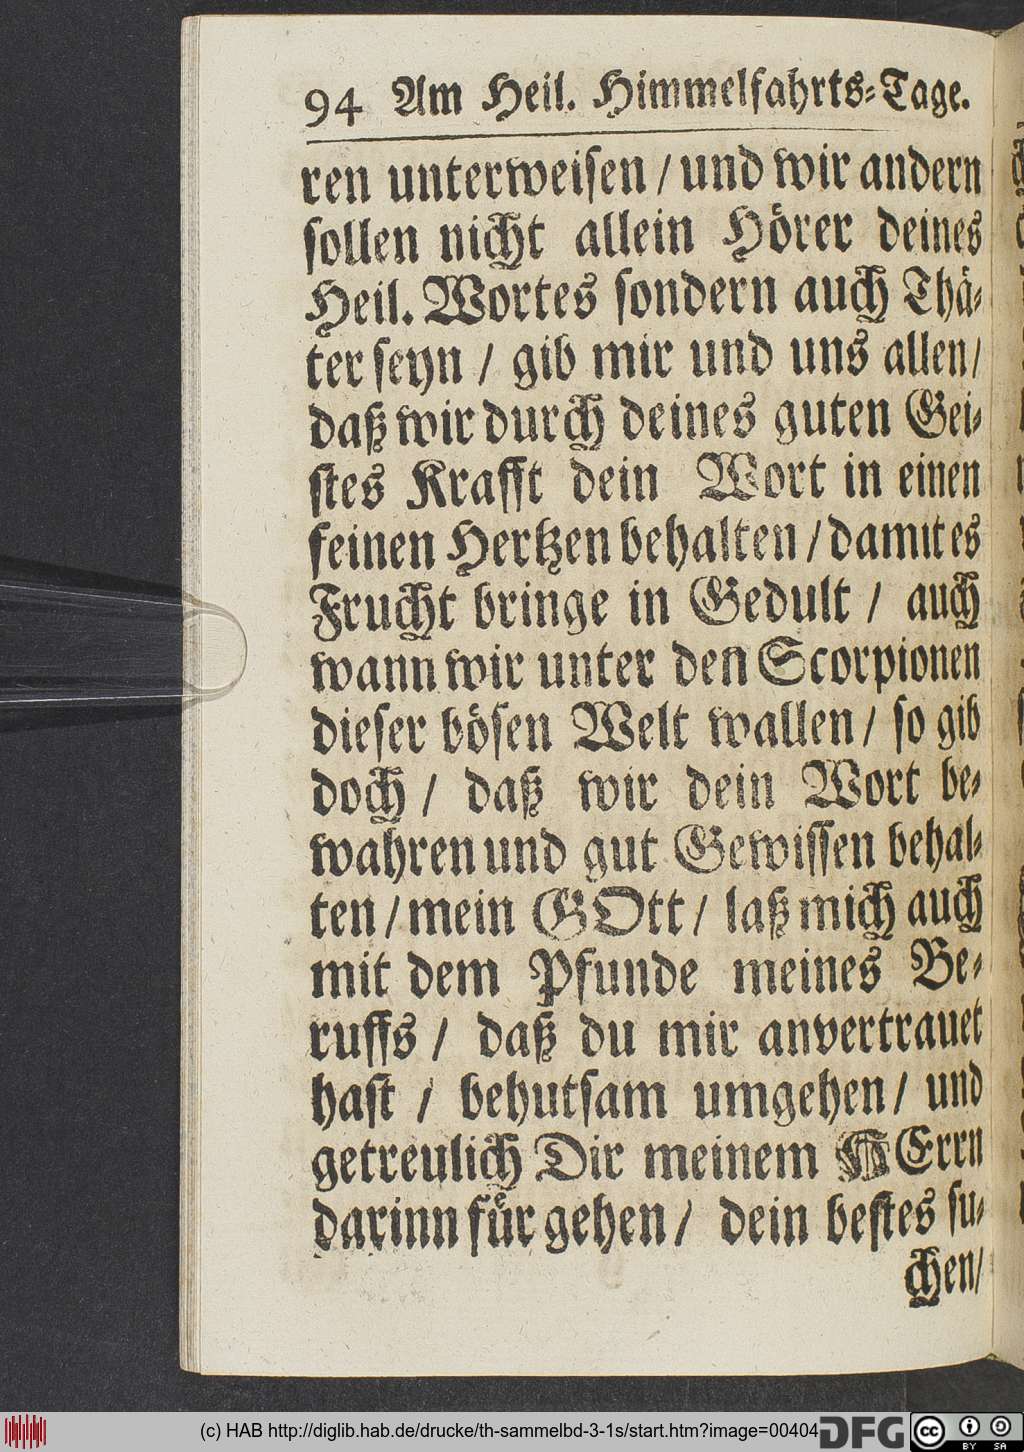 94 Am Heil. Himmelfahrts-Tage.
ren unterweisen / und wir andern
sollen nicht allein Hörer deines
Heil. Wortes sondern auch Thä-
ter seyn / gib mir und uns allen/
daß wir durch deines guten Gei-
stes Krafft dein Wort in einen
feinen Hertzen behalten / damit es
Frucht bringe in Gedult / auch
wann wir unter den Scorpionen
dieser bösen Welt wallen / so gib
doch / daß wir dein Wort be-
wahren und gut Gewissen behal-
ten / mein GOtt / laß mich auch
mit dem Pfunde meines Be-
ruffs / daß du mir anvertrauet
hast / behutsam umgehen / und
getreulich Dir meinem HErrn
darinn für gehen / dein bestes su-
chen/
(c) HAB http://diglib.hab.de/drucke/th-sammelbd-3-1s/start.htm?image=00404
DFG
cc
BY SA